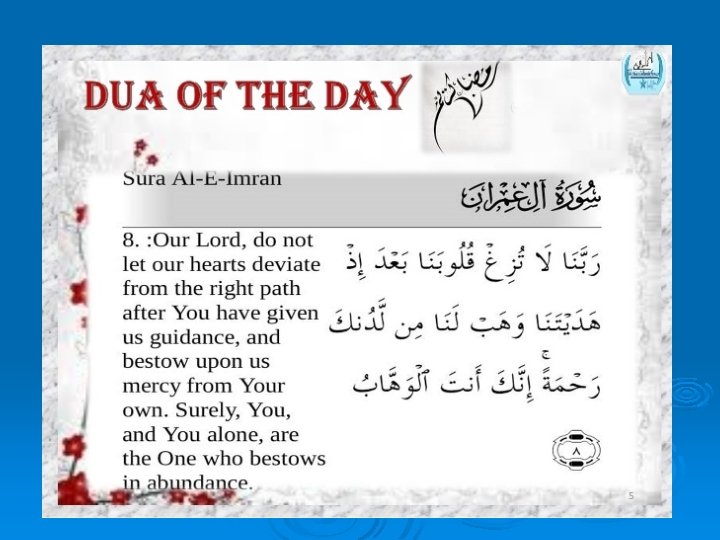 DUA OF THE DAY
Sura Al-E-Imran
سُورَةُ آلِ عِمْرَانَ
8. :Our Lord, do not
let our hearts deviate
from the right path
after You have given
us guidance, and
bestow upon us
mercy from Your
own. Surely, You,
and You alone, are
the One who bestows
in abundance.
رَبَّنَا لَا تُزِغْ قُلُوبَنَا بَعْدَ إِذْ
هَدَيْتَنَا وَهَبْ لَنَا مِن لَّدُنكَ
رَحْمَةً ۚ إِنَّكَ أَنتَ ٱلْوَهَّابُ
٨
5